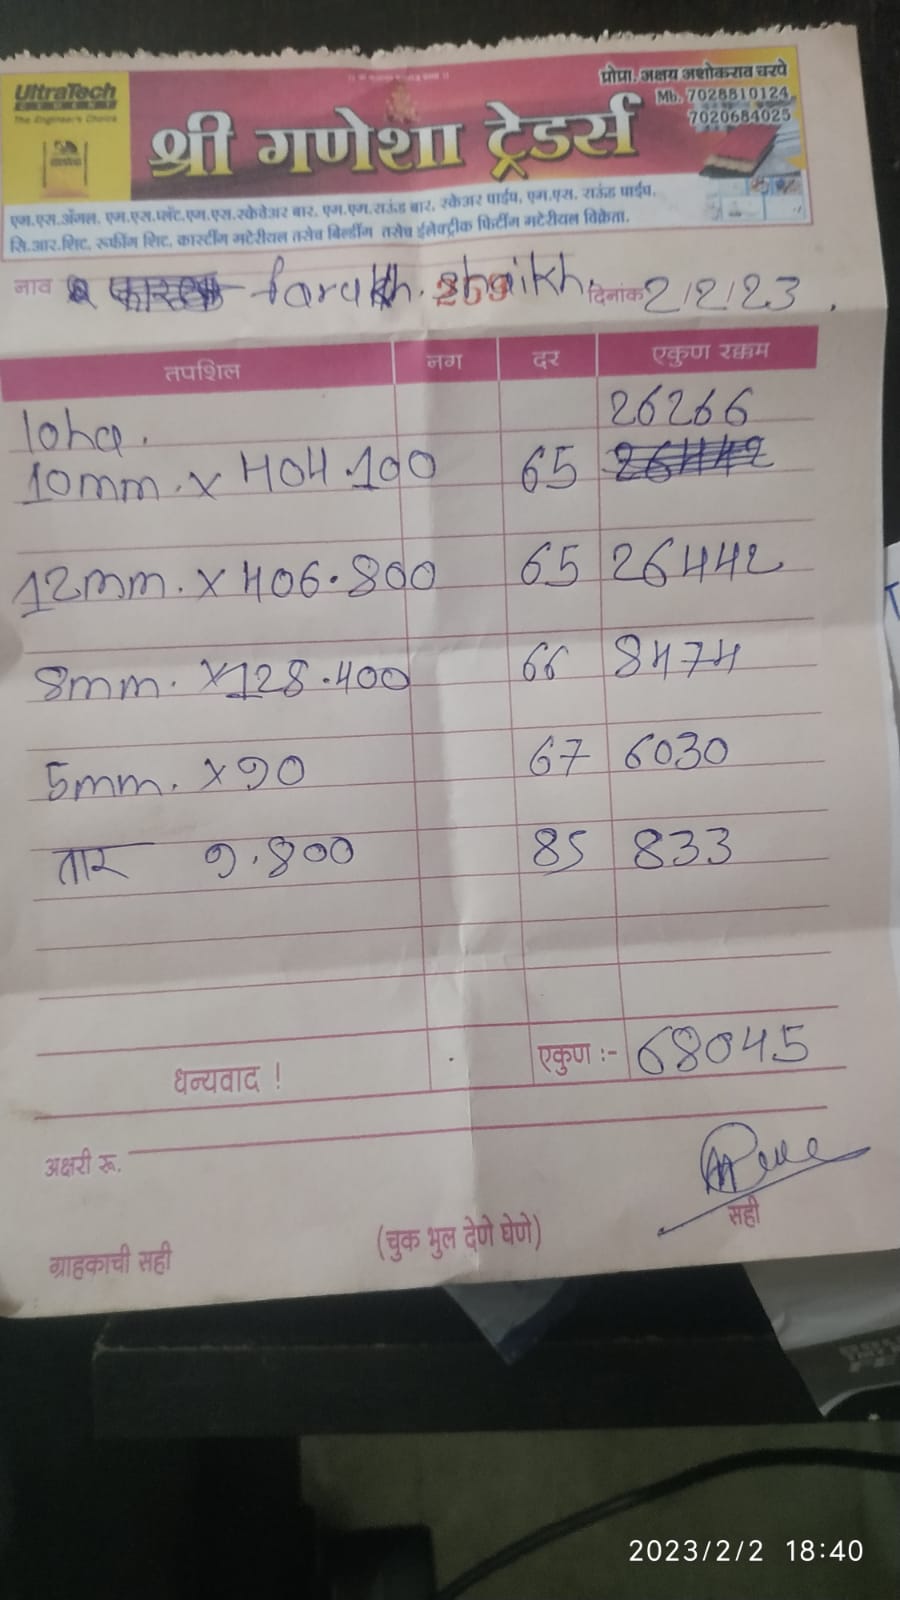 UltraTech
CEMENT
The Engineer's Choice
प्रोप्रा. अक्षय अशोकराव चरपे
Mb. 7028810124,
7020684025
श्री गणेशा ट्रेडर्स
एम.एस.अँगल, एम.एस.प्लॅट,एम.एस.स्केवेअर बार, एम.एम.राऊंड बार, स्केअर पाईप, एम.एस. राऊंड पाईप,
सि.आर.शिट, रूफींग शिट, कास्टींग मटेरीयल तसेच बिल्डींग तसेच ईलेक्ट्रीक फिटींग मटेरीयल विक्रेता.
नाव farukh. shaikh. दिनांक 2/2/23.
तपशिल नग दर एकुण रक्कम
loha. 26266
10mm. x 404.100 65 26442
12mm. x 406.800 65 26442
8mm. x128.400 66 8474
5mm. x90 67 6030
तार 9.800 85 833
धन्यवाद ! एकुण :- 68045
अक्षरी रू.
सही
ग्राहकाची सही (चुक भुल देणे घेणे)
2023/2/2 18:40